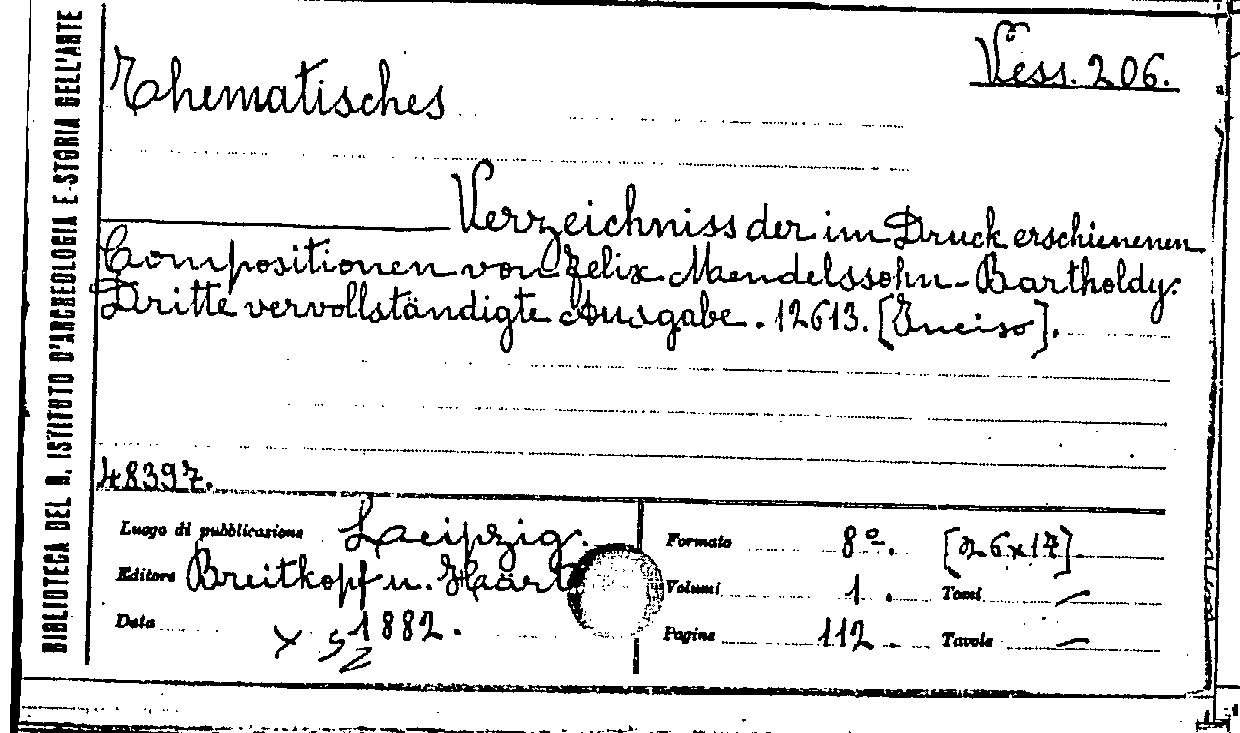 BIBLIOTECA DEL R. ISTITUTO D'ARCHEOLOGIA E STORIA DELL'ARTE
Vess. 206.
Thematisches
Verzeichniss der im Druck erschienenen
Compositionen von Felix Mendelssohn-Bartholdy.
Dritte vervollständigte Ausgabe. 12613. [Inciso].
48397.
Luogo di pubblicazione Leipzig.
Editore Breitkopf u. Härt
Data 1882.
Formato 8º. [26x17].
Volumi 1. Tomi —
Pagine 112. Tavole —